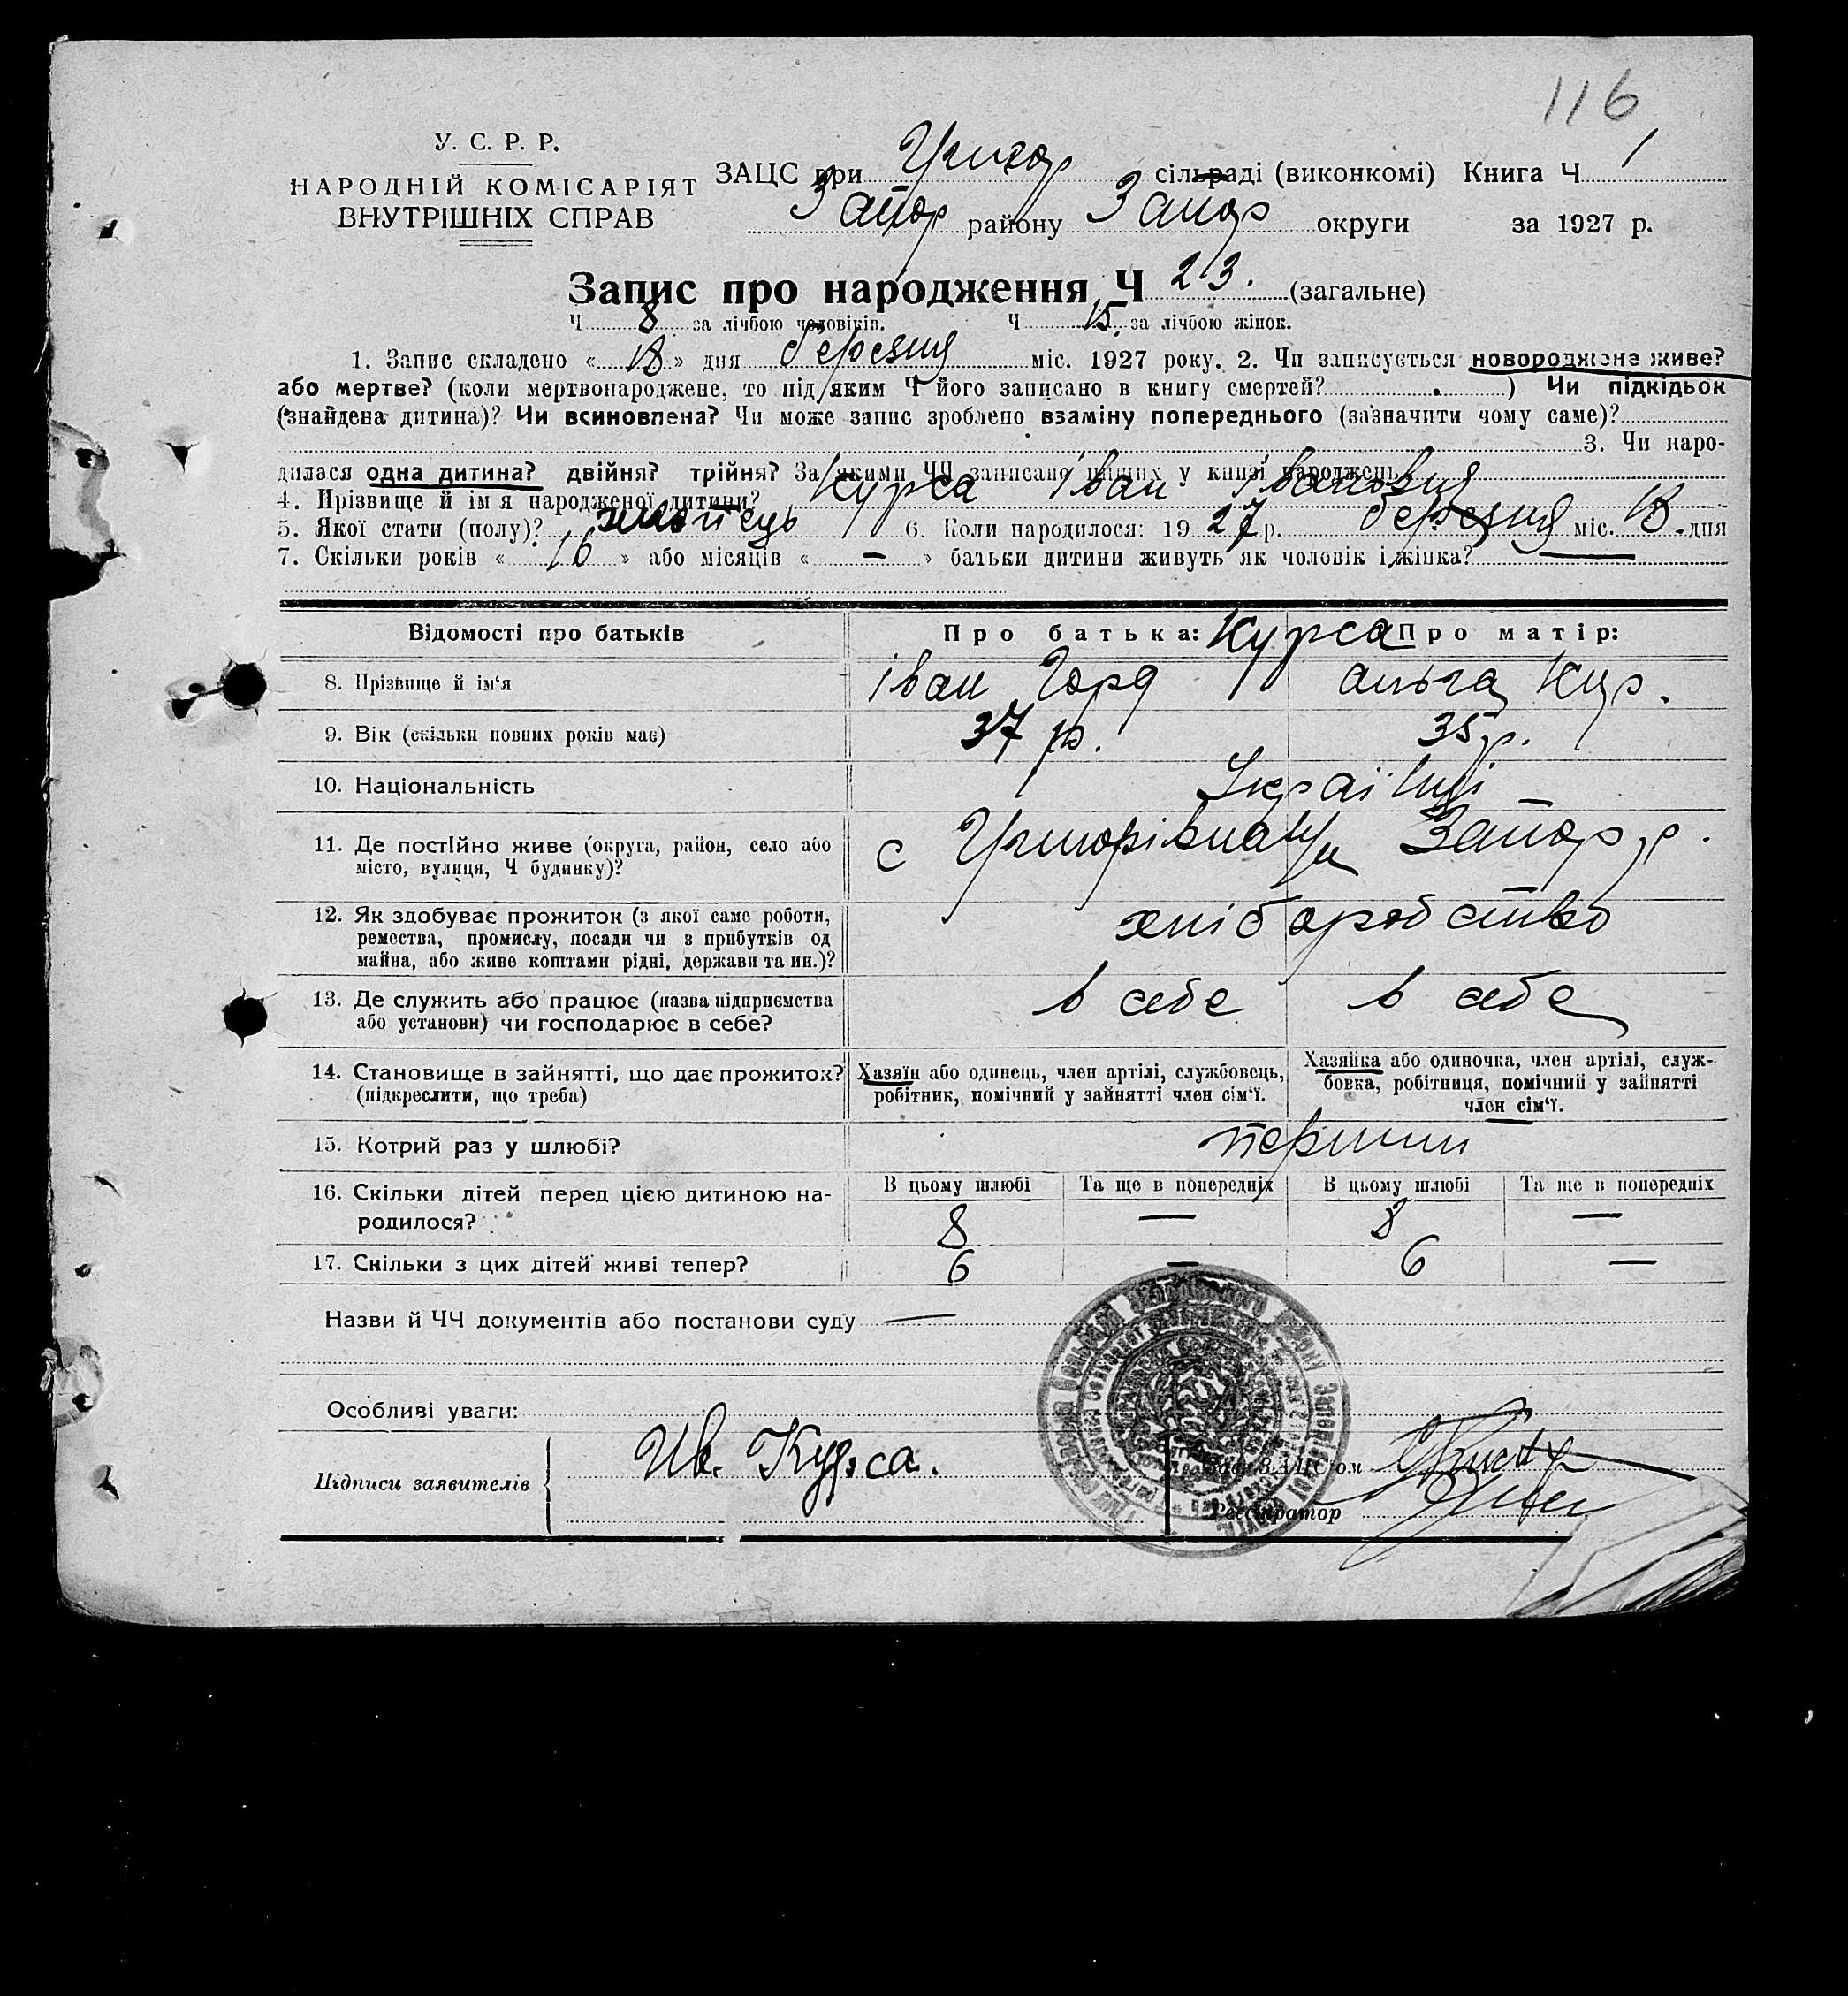 116
У. С. Р. Р.
НАРОДНІЙ КОМІСАРІЯТ
ВНУТРІШНІХ СПРАВ
ЗАЦС при Григор сільраді (виконкомі) Книга Ч 1
Запор району Запор округи за 1927 р.
Запис про народження Ч 23. (загальне)
Ч 8 за лічбою чоловіків. Ч 15. за лічбою жінок.
1. Запис складено « 18 » дня березня міс. 1927 року. 2. Чи записується новороджене живе?
або мертве? (коли мертвонароджене, то під яким Ч його записано в книгу смертей? ) Чи підкідьок
(знайдена дитина)? Чи всиновлена? Чи може запис зроблено взаміну попереднього (зазначити чому саме)?
3. Чи наро-
дилася одна дитина? двійня? трійня? За якими ЧЧ записано інших у книзі народжень
4. Прізвище й ім'я народженої дитини? Курса Іван Іванович
5. Якої стати (полу)? хлопець 6. Коли народилося: 1927 р. березня міс. 18 дня
7. Скільки років « 16 » або місяців « — » батьки дитини живуть як чоловік і жінка? —
Відомості про батьків Про батька: Курса Про матір:
8. Прізвище й ім'я Іван Горд Ольга Кир.
9. Вік (скільки повних років має) 37 р. 35 р.
10. Національність Українці
11. Де постійно живе (округа, район, село або
місто, вулиця, Ч будинку)? с Григорівка Запор р.
12. Як здобуває прожиток (з якої саме роботи,
ремества, промислу, посади чи з прибутків од
майна, або живе коштами рідні, держави та ин.)? хліборобство
13. Де служить або працює (назва підприємства
або установи) чи господарює в себе? в себе в себе
14. Становище в зайнятті, що дає прожиток?
(підкреслити, що треба)
Хазяїн або одинець, член артілі, службовець,
робітник, помічний у зайнятті член сім'ї.
Хазяйка або одиночка, член артілі, служ-
бовка, робітниця, помічний у зайнятті
член сім'ї.
15. Котрий раз у шлюбі? перший
16. Скільки дітей перед цією дитиною на-
родилося?
В цьому шлюбі Та ще в попередніх В цьому шлюбі Та ще в попередніх
8 — 8 —
17. Скільки з цих дітей живі тепер? 6 — 6 —
Назви й ЧЧ документів або постанови суду —
Особливі уваги:
Підписи заявителів Ив. Курса.
Завідач ЗАЦС'ом
Реєстратор